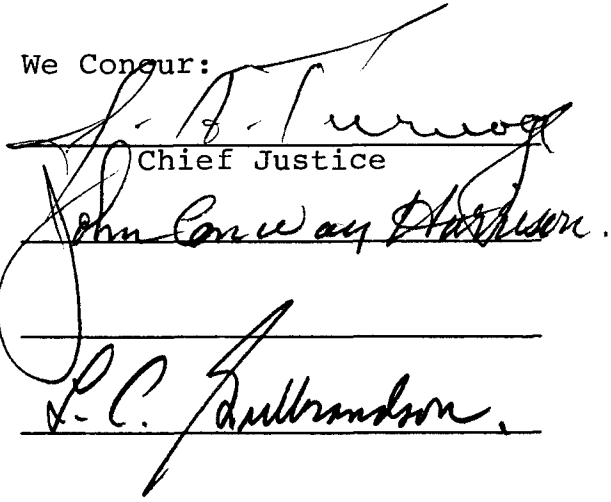 We Concur:
J. A. Turnage
Chief Justice
John Conway Harrison.
L. C. Gulbrandson.